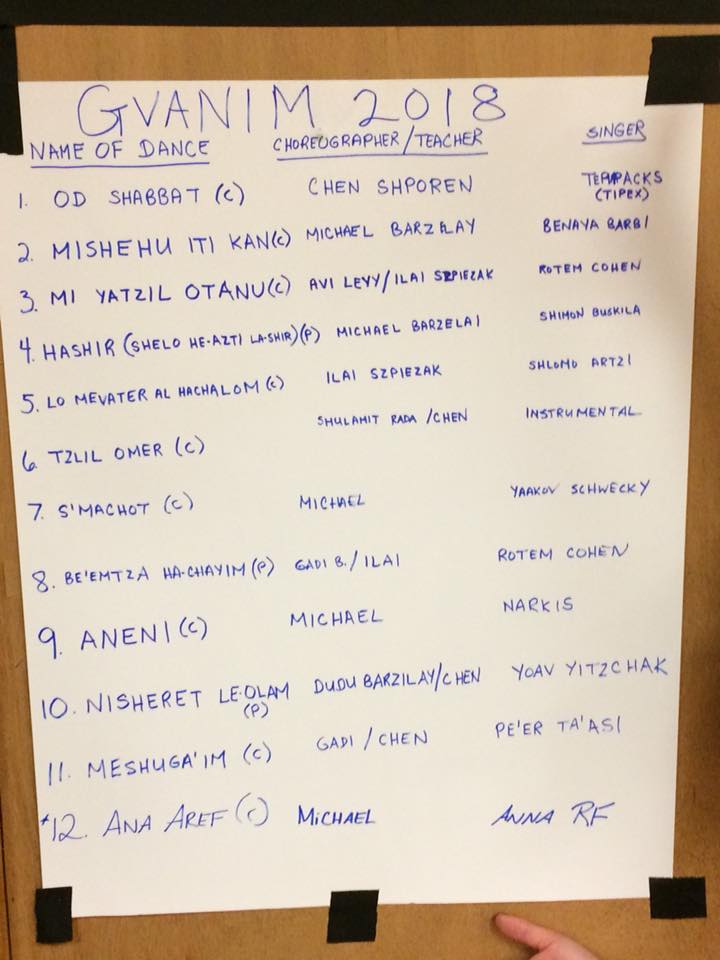 GVANIM 2018
NAME OF DANCE CHOREOGRAPHER/TEACHER SINGER
1. OD SHABBAT (C) CHEN SHPOREN TEAPACKS
(TIPEX)
2. MISHEHU ITI KAN(C) MICHAEL BARZELAY BENAYA BARBI
3. MI YATZIL OTANU(C) AVI LEVY/ILAI SZPIEZAK ROTEM COHEN
4. HASHIR (SHELO HE-AZTI LA-SHIR)(P) MICHAEL BARZELAI SHIMON BUSKILA
5. LO MEVATER AL HACHALOM (C) ILAI SZPIEZAK SHLOMO ARTZI
6. TZLIL OMER (C) SHULAMIT RADA/CHEN INSTRUMENTAL
7. S'MACHOT (C) MICHAEL YAAKOV SCHWECKY
8. BE'EMTZA HA-CHAYIM (P) GADI B./ILAI ROTEM COHEN
9. ANENI (C) MICHAEL NARKIS
10. NISHERET LE-OLAM DUDU BARZILAY/CHEN YOAV YITZCHAK
(P)
11. MESHUGA'IM (C) GADI/CHEN PE'ER TA'ASI
*12. ANA AREF (C) MICHAEL ANNA RF